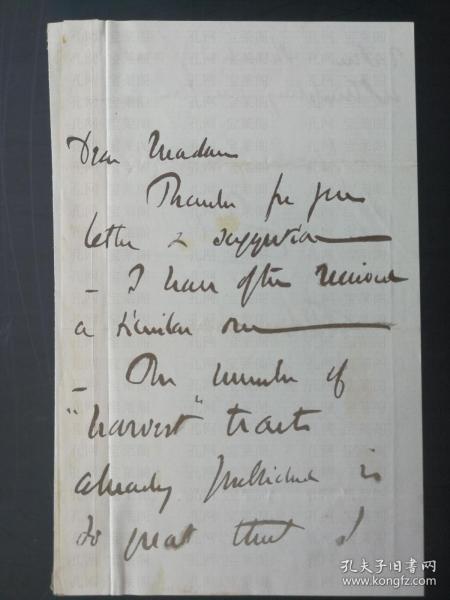 Dear Madam
Thanks for your
letter & suggestion
– I have often received
a similar one
– The number of
"harvest" tracts
already published is
so great that I
孔夫子旧书网
www.kongfz.com